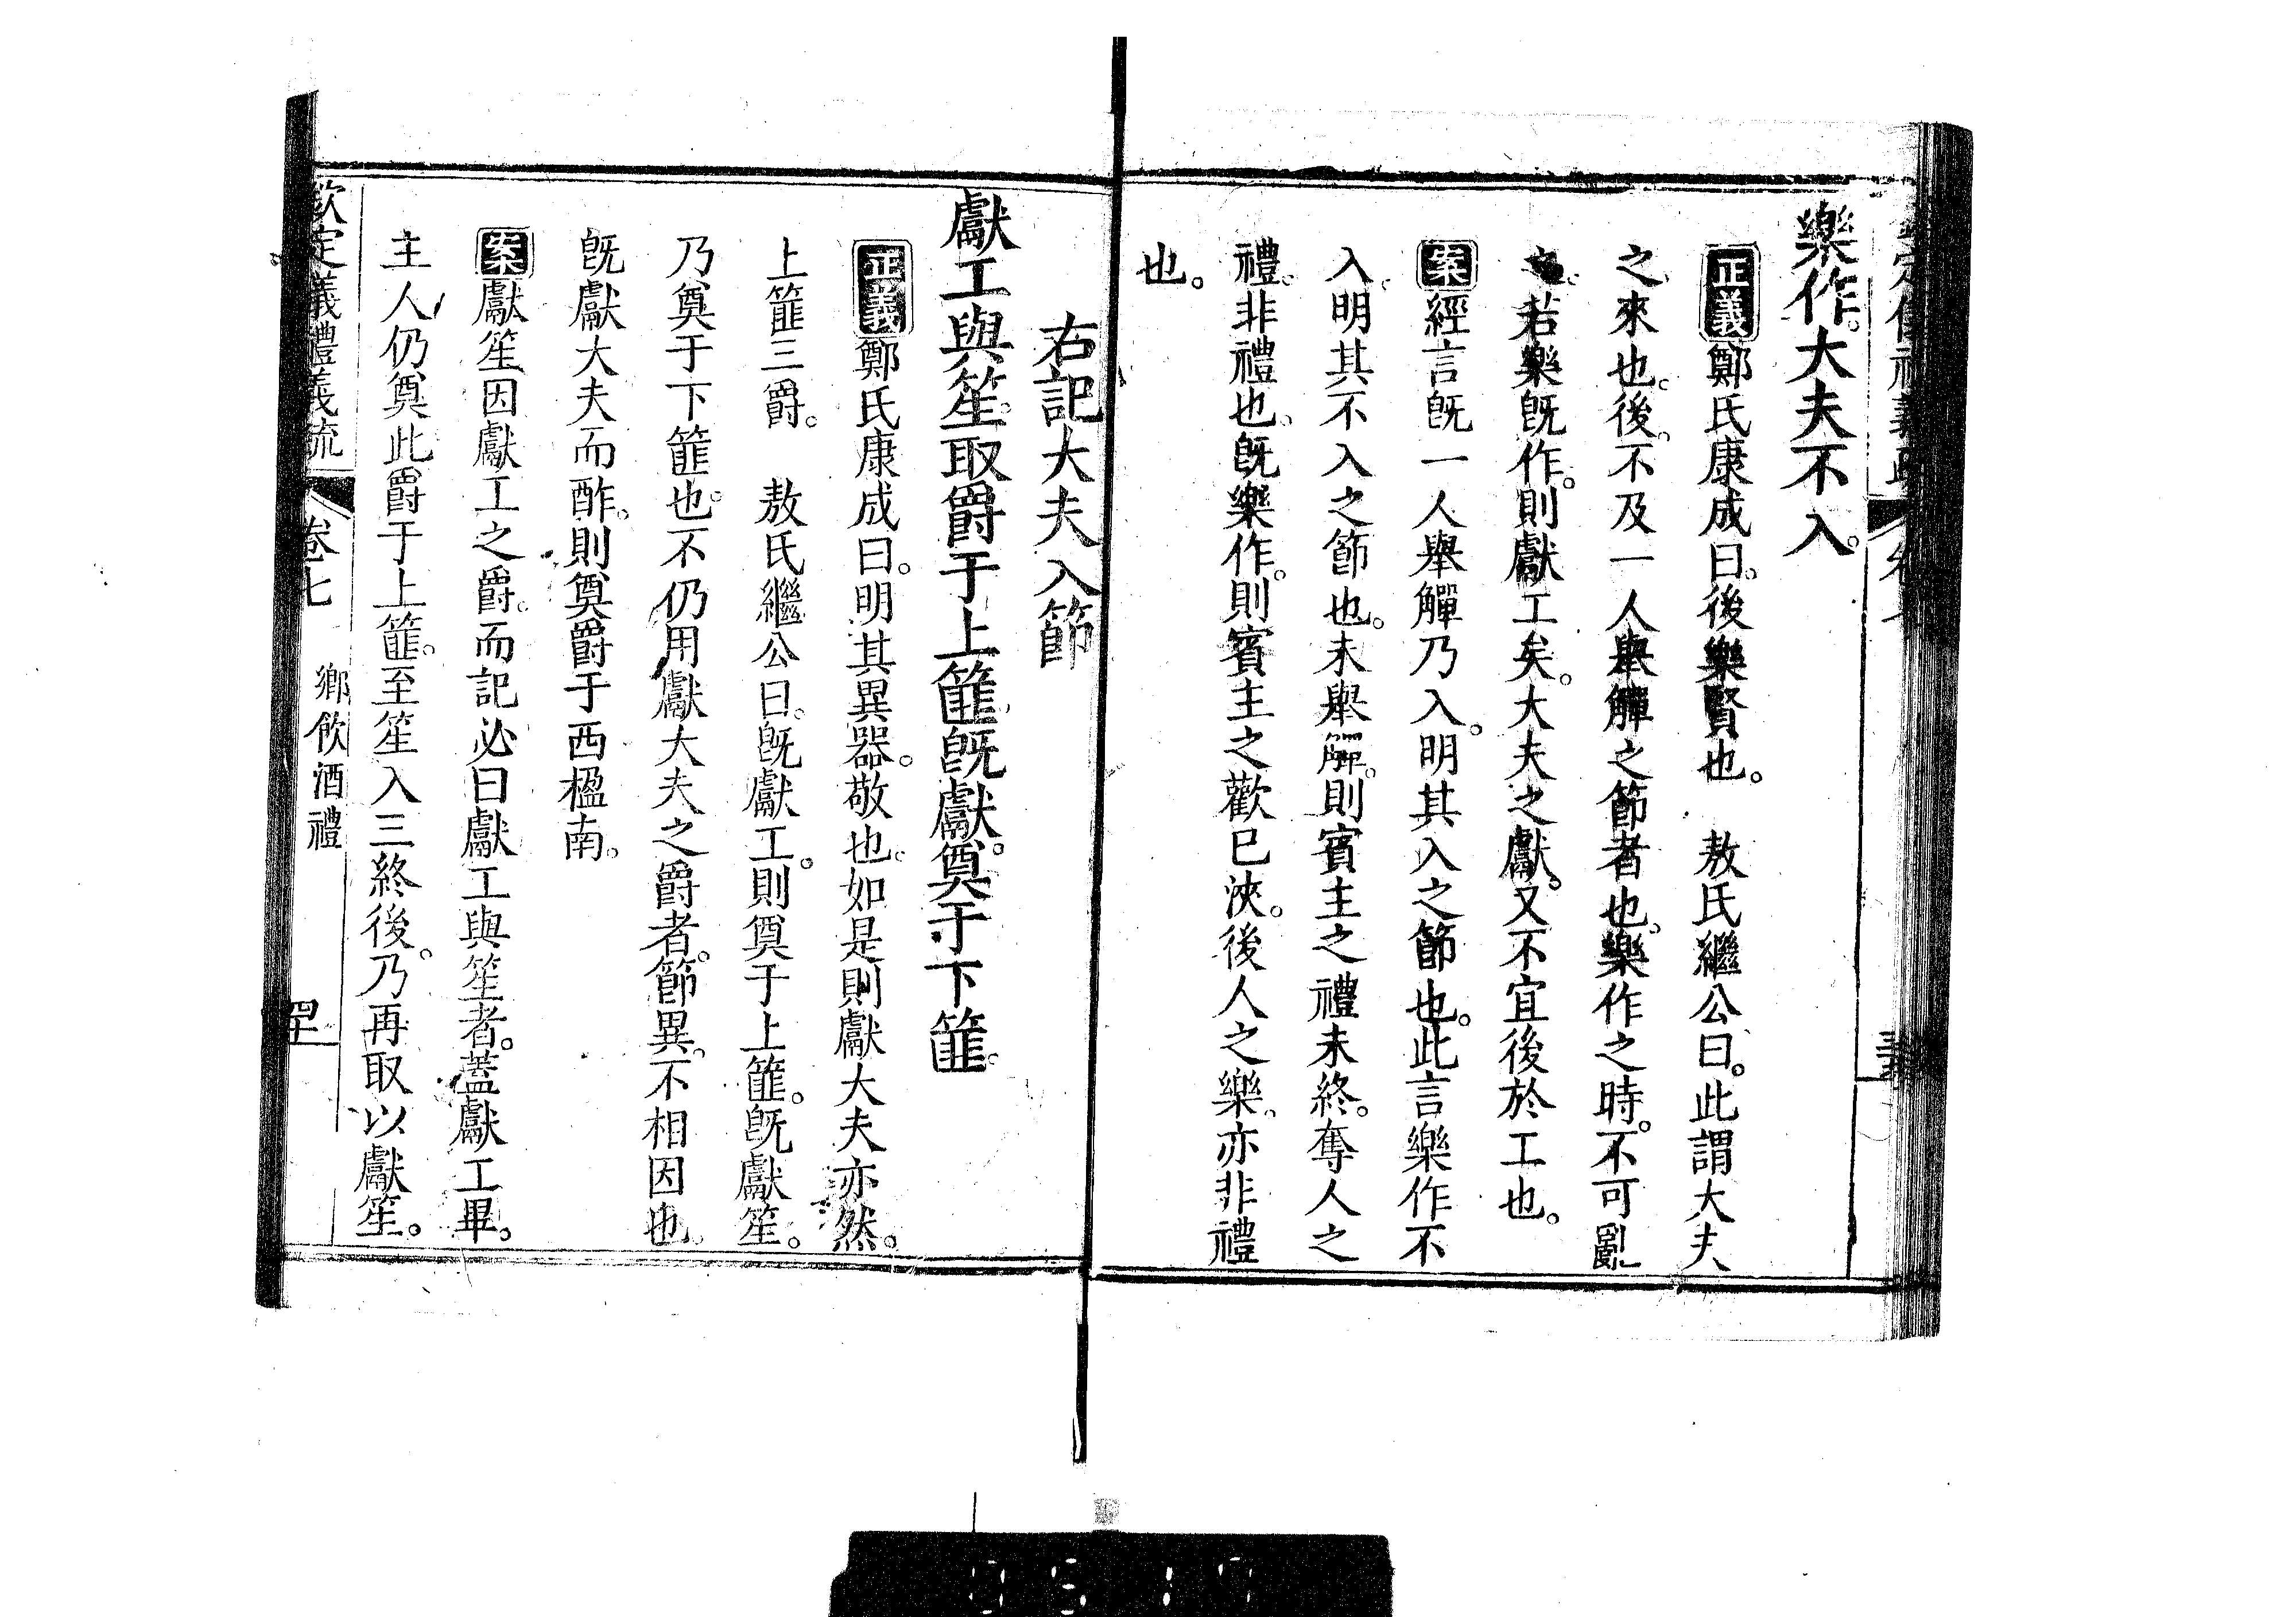 樂作。大夫不入。
正義鄭氏康成曰。後樂賢也。　敖氏繼公曰。此謂大夫
之來也。後。不及一人舉觶之節者也。樂作之時。不可亂
之。若樂旣作。則獻工矣。大夫之獻。又不宜後於工也。
案經言旣一人舉觶乃入。明其入之節也。此言樂作不
入。明其不入之節也。未舉觶。則賓主之禮未終。奪人之
禮。非禮也。旣樂作。則賓主之歡已浹。後人之樂。亦非禮
也。
右記大夫入節
獻工與笙。取爵于上篚。旣獻。奠于下篚。
正義鄭氏康成曰。明其異器。敬也。如是則獻大夫亦然。
上篚三爵。　敖氏繼公曰。旣獻工。則奠于上篚。旣獻笙。
乃奠于下篚也。不仍用獻大夫之爵者。節異。不相因也。
旣獻大夫而酢。則奠爵于西楹南。
案獻笙因獻工之爵。而記必曰獻工與笙者。蓋獻工畢。
主人仍奠此爵于上篚。至笙入三終後。乃再取以獻笙。
欽定儀禮義疏　卷七　鄉飲酒禮